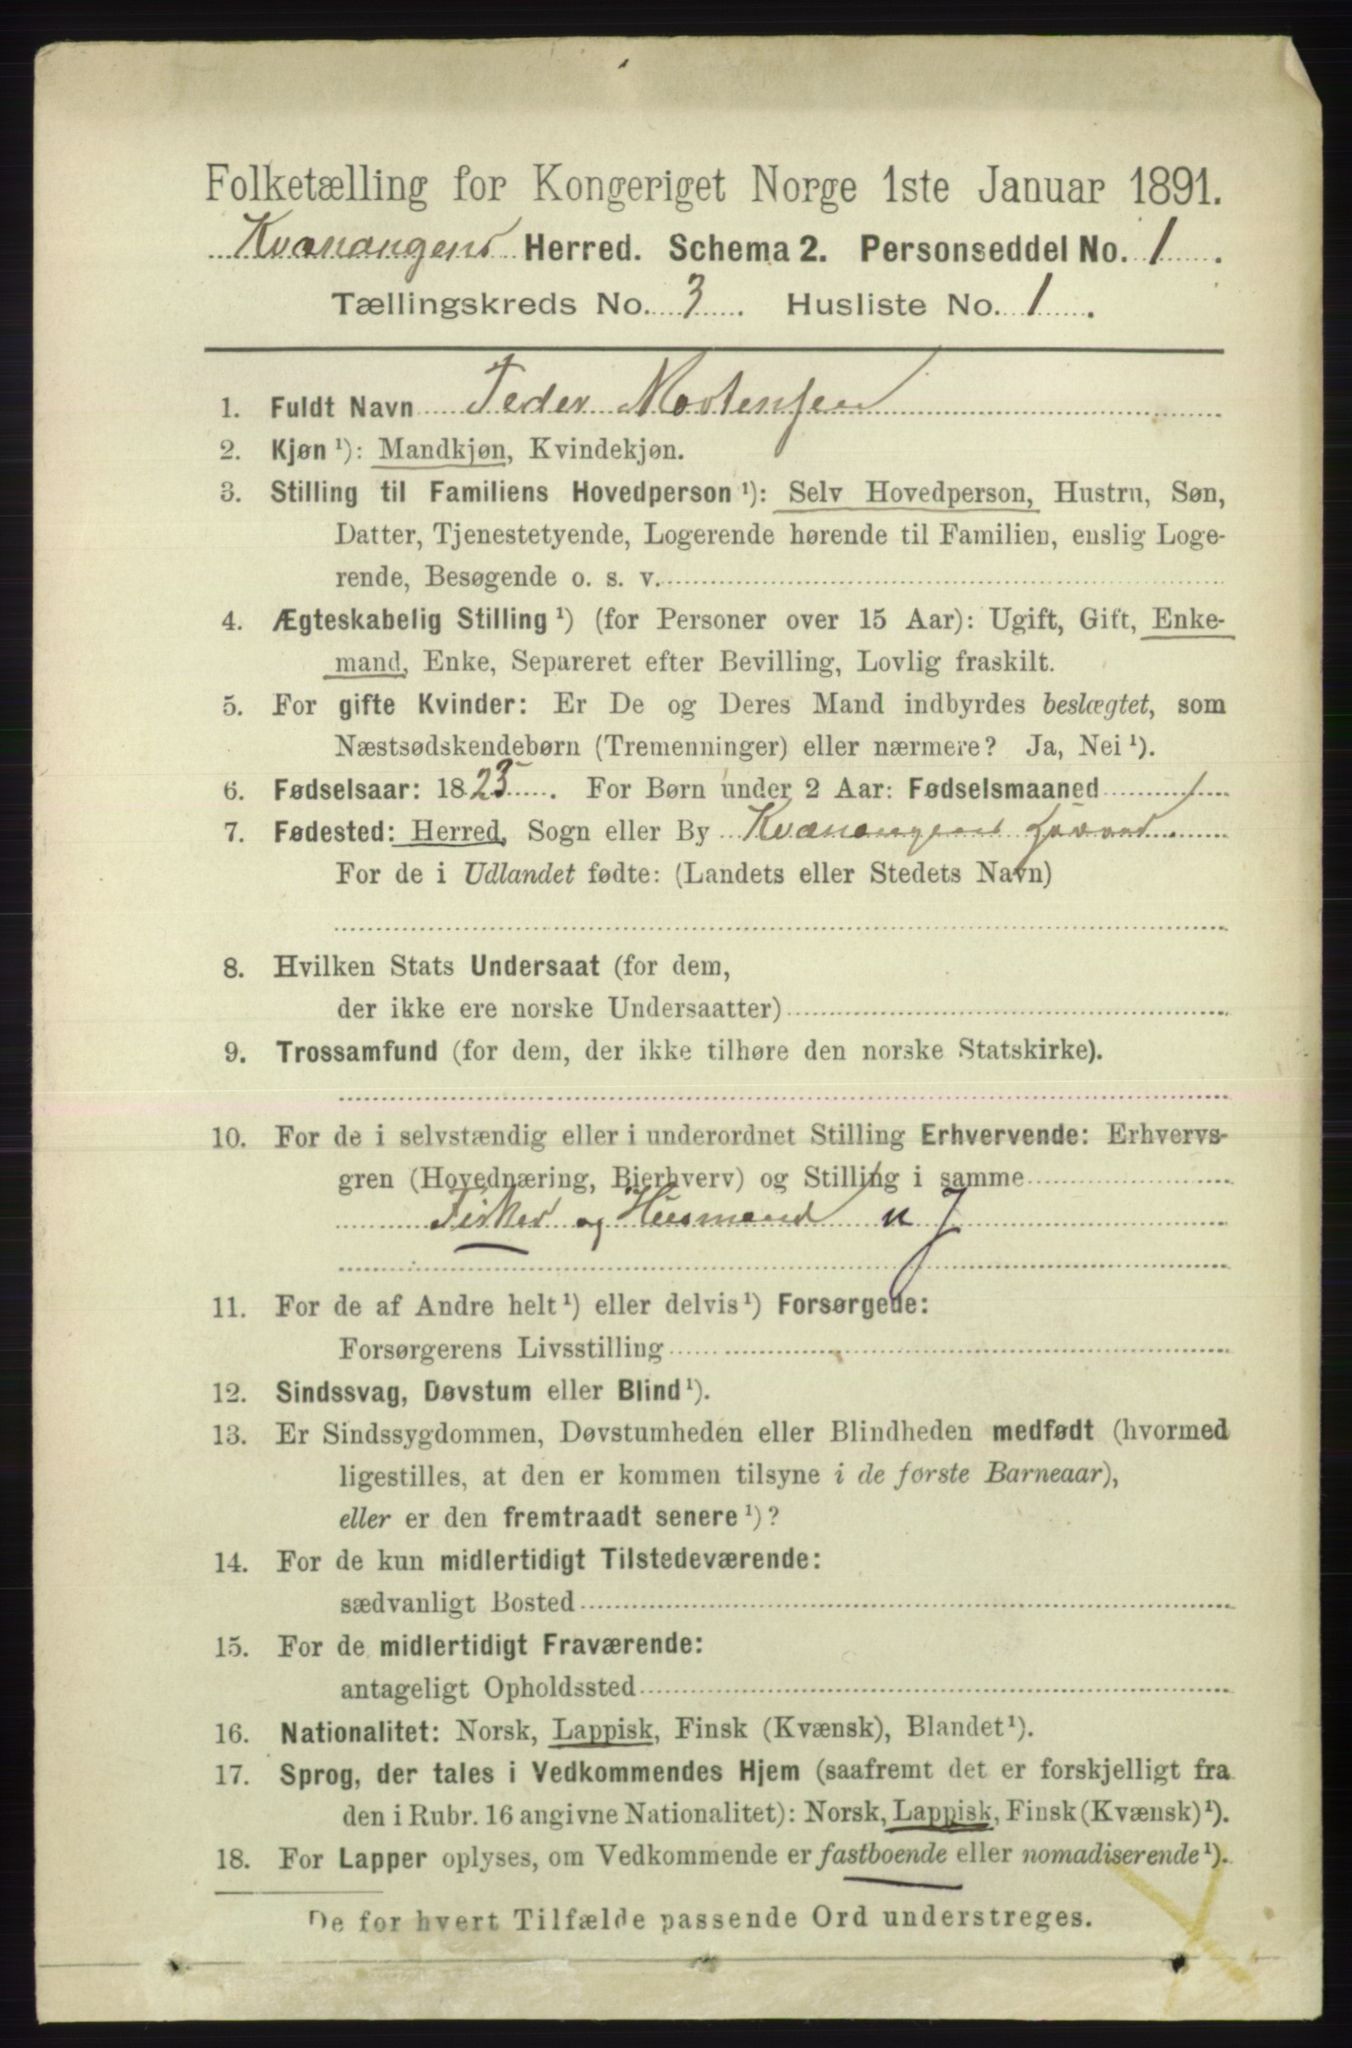 Folketælling for Kongeriget Norge 1ste Januar 1891.
Kvænangens Herred. Schema 2. Personseddel No. 1.
Tællingskreds No. 3. Husliste No. 1.
1. Fuldt Navn Peder Mortensen
2. Kjøn ¹): Mandkjøn, Kvindekjøn.
3. Stilling til Familiens Hovedperson ¹): Selv Hovedperson, Hustru, Søn,
Datter, Tjenestetyende, Logerende hørende til Familien, enslig Loge-
rende, Besøgende o. s. v.
4. Ægteskabelig Stilling ¹) (for Personer over 15 Aar): Ugift, Gift, Enke-
mand, Enke, Separeret efter Bevilling, Lovlig fraskilt.
5. For gifte Kvinder: Er De og Deres Mand indbyrdes beslægtet, som
Næstsødskendebørn (Tremenninger) eller nærmere? Ja, Nei ¹).
6. Fødselsaar: 1823. For Børn under 2 Aar: Fødselsmaaned
7. Fødested: Herred, Sogn eller By Kvænangens Herred.
For de i Udlandet fødte: (Landets eller Stedets Navn)
8. Hvilken Stats Undersaat (for dem,
der ikke ere norske Undersaatter)
9. Trossamfund (for dem, der ikke tilhøre den norske Statskirke).
10. For de i selvstændig eller i underordnet Stilling Erhvervende: Erhvervs-
gren (Hovednæring, Bierhverv) og Stilling i samme
Fisker og Husmand u J
11. For de af Andre helt ¹) eller delvis ¹) Forsørgede:
Forsørgerens Livsstilling
12. Sindssvag, Døvstum eller Blind ¹).
13. Er Sindssygdommen, Døvstumheden eller Blindheden medfødt (hvormed
ligestilles, at den er kommen tilsyne i de første Barneaar),
eller er den fremtraadt senere ¹)?
14. For de kun midlertidigt Tilstedeværende:
sædvanligt Bosted
15. For de midlertidigt Fraværende:
antageligt Opholdssted
16. Nationalitet: Norsk, Lappisk, Finsk (Kvænsk), Blandet ¹).
17. Sprog, der tales i Vedkommendes Hjem (saafremt det er forskjelligt fra
den i Rubr. 16 angivne Nationalitet): Norsk, Lappisk, Finsk (Kvænsk) ¹).
18. For Lapper oplyses, om Vedkommende er fastboende eller nomadiserende ¹).
De for hvert Tilfælde passende Ord understreges.